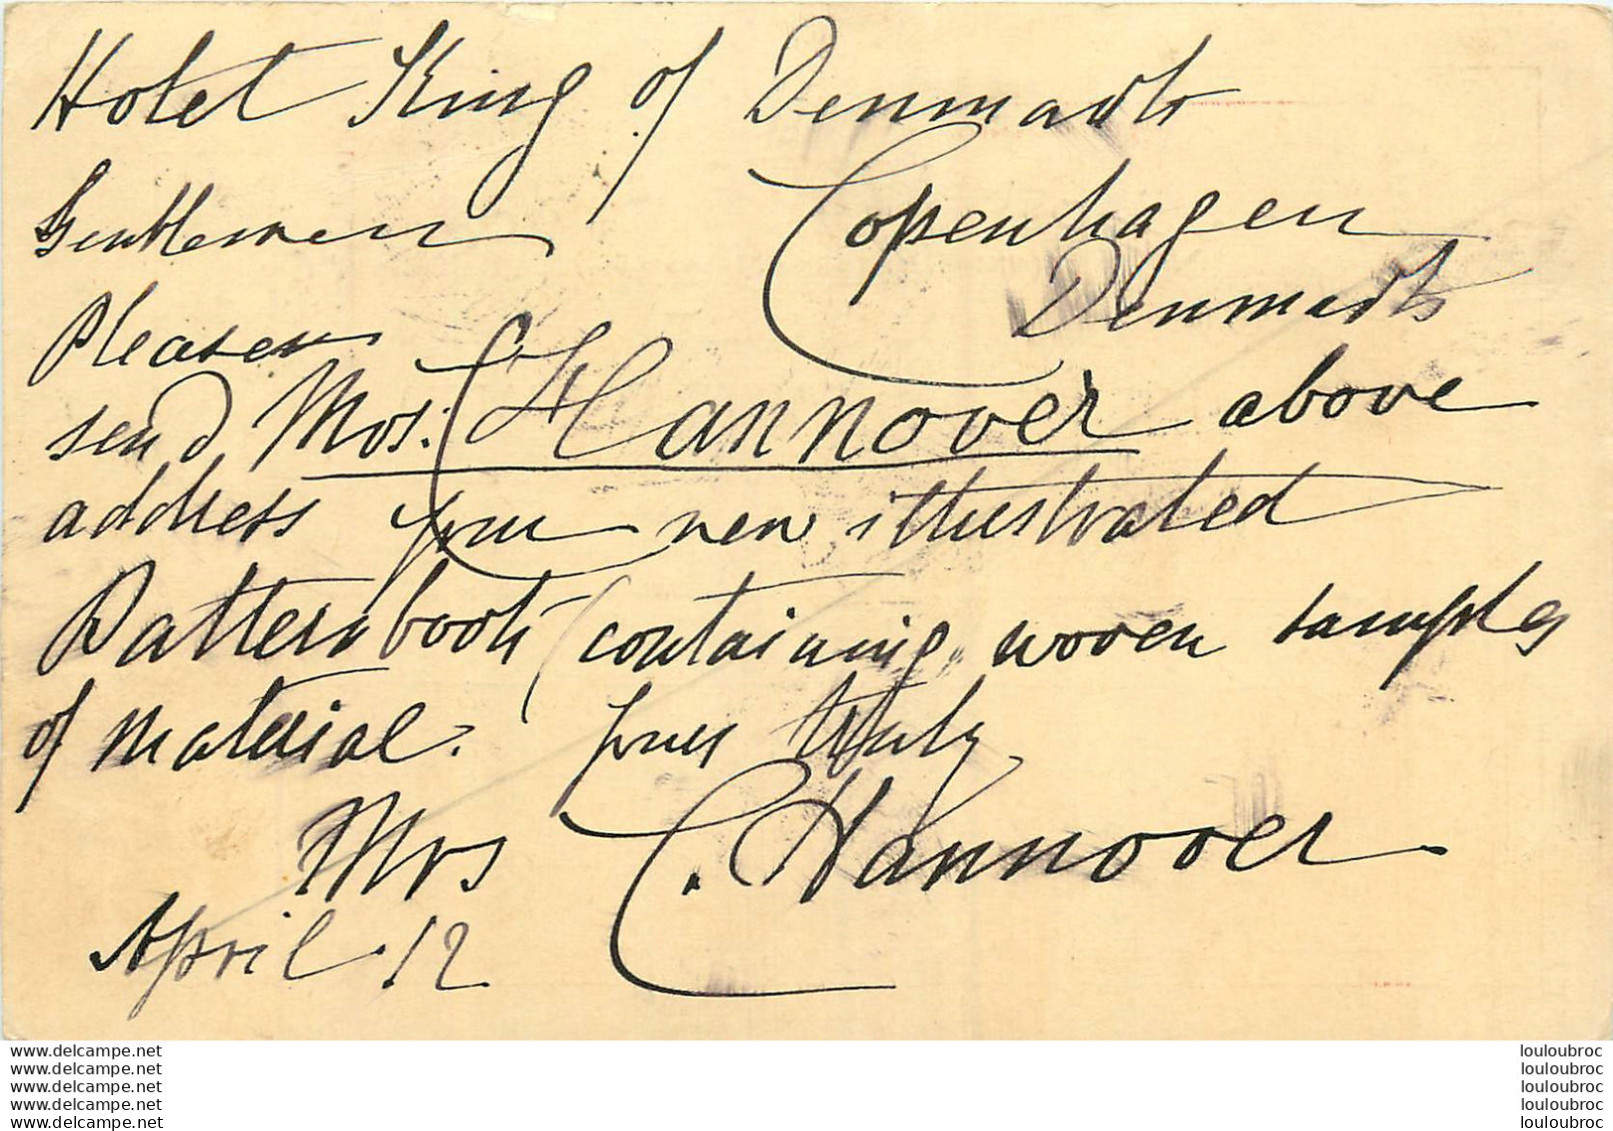 Hotel King of Denmark
Copenhagen
Denmark
Gentlemen
Please
send Mrs. C Hannover above
address your new illustrated
Pattern book (containing woven samples
of material. Yours truly
Mrs C. Hannover
April 12
www.delcampe.net
www.delcampe.net
www.delcampe.net
www.delcampe.net
www.delcampe.net
louloubroc
louloubroc
louloubroc
louloubroc
louloubroc